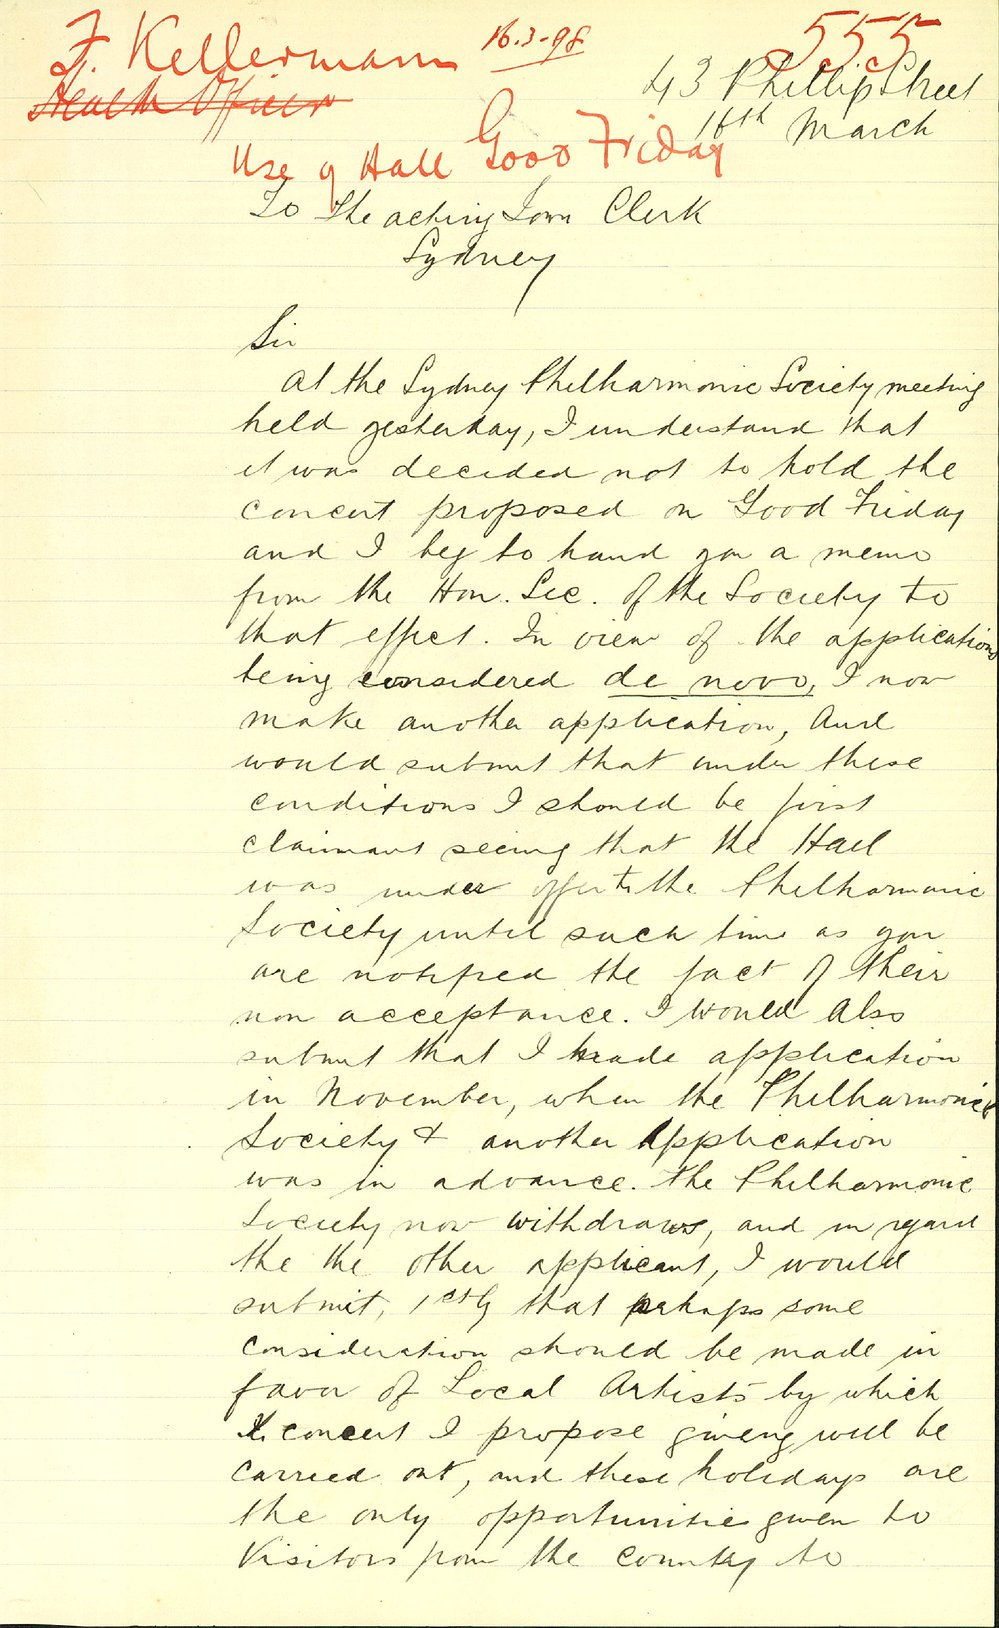 F. Kellermann 16.3-98 555
Health Officer
43 Phillip Street
16th March
Use of Hall Good Friday
To The acting Town Clerk
Sydney
Sir
At the Sydney Philharmonic Society meeting
held yesterday, I understand that
it was decided not to hold the
concert proposed on Good Friday
and I beg to hand you a memo
from the Hon. Sec. of the Society to
that effect. In view of the applications
being considered de novo, I now
make another application, And
would submit that under these
conditions I should be first
claimant seeing that the Hall
was under offer to the Philharmonic
Society until such time as you
are notified the fact of their
non acceptance. I would Also
submit that I made application
in November, when the Philharmonic
Society & another Application
was in advance. The Philharmonic
Society now withdraws, and in regard
the the other applicant, I would
submit, 1stly that perhaps some
consideration should be made in
favor of Local Artists by which
concert I propose giving will be
carried out, and these holidays are
the only opportunities given to
Visitors from the country to